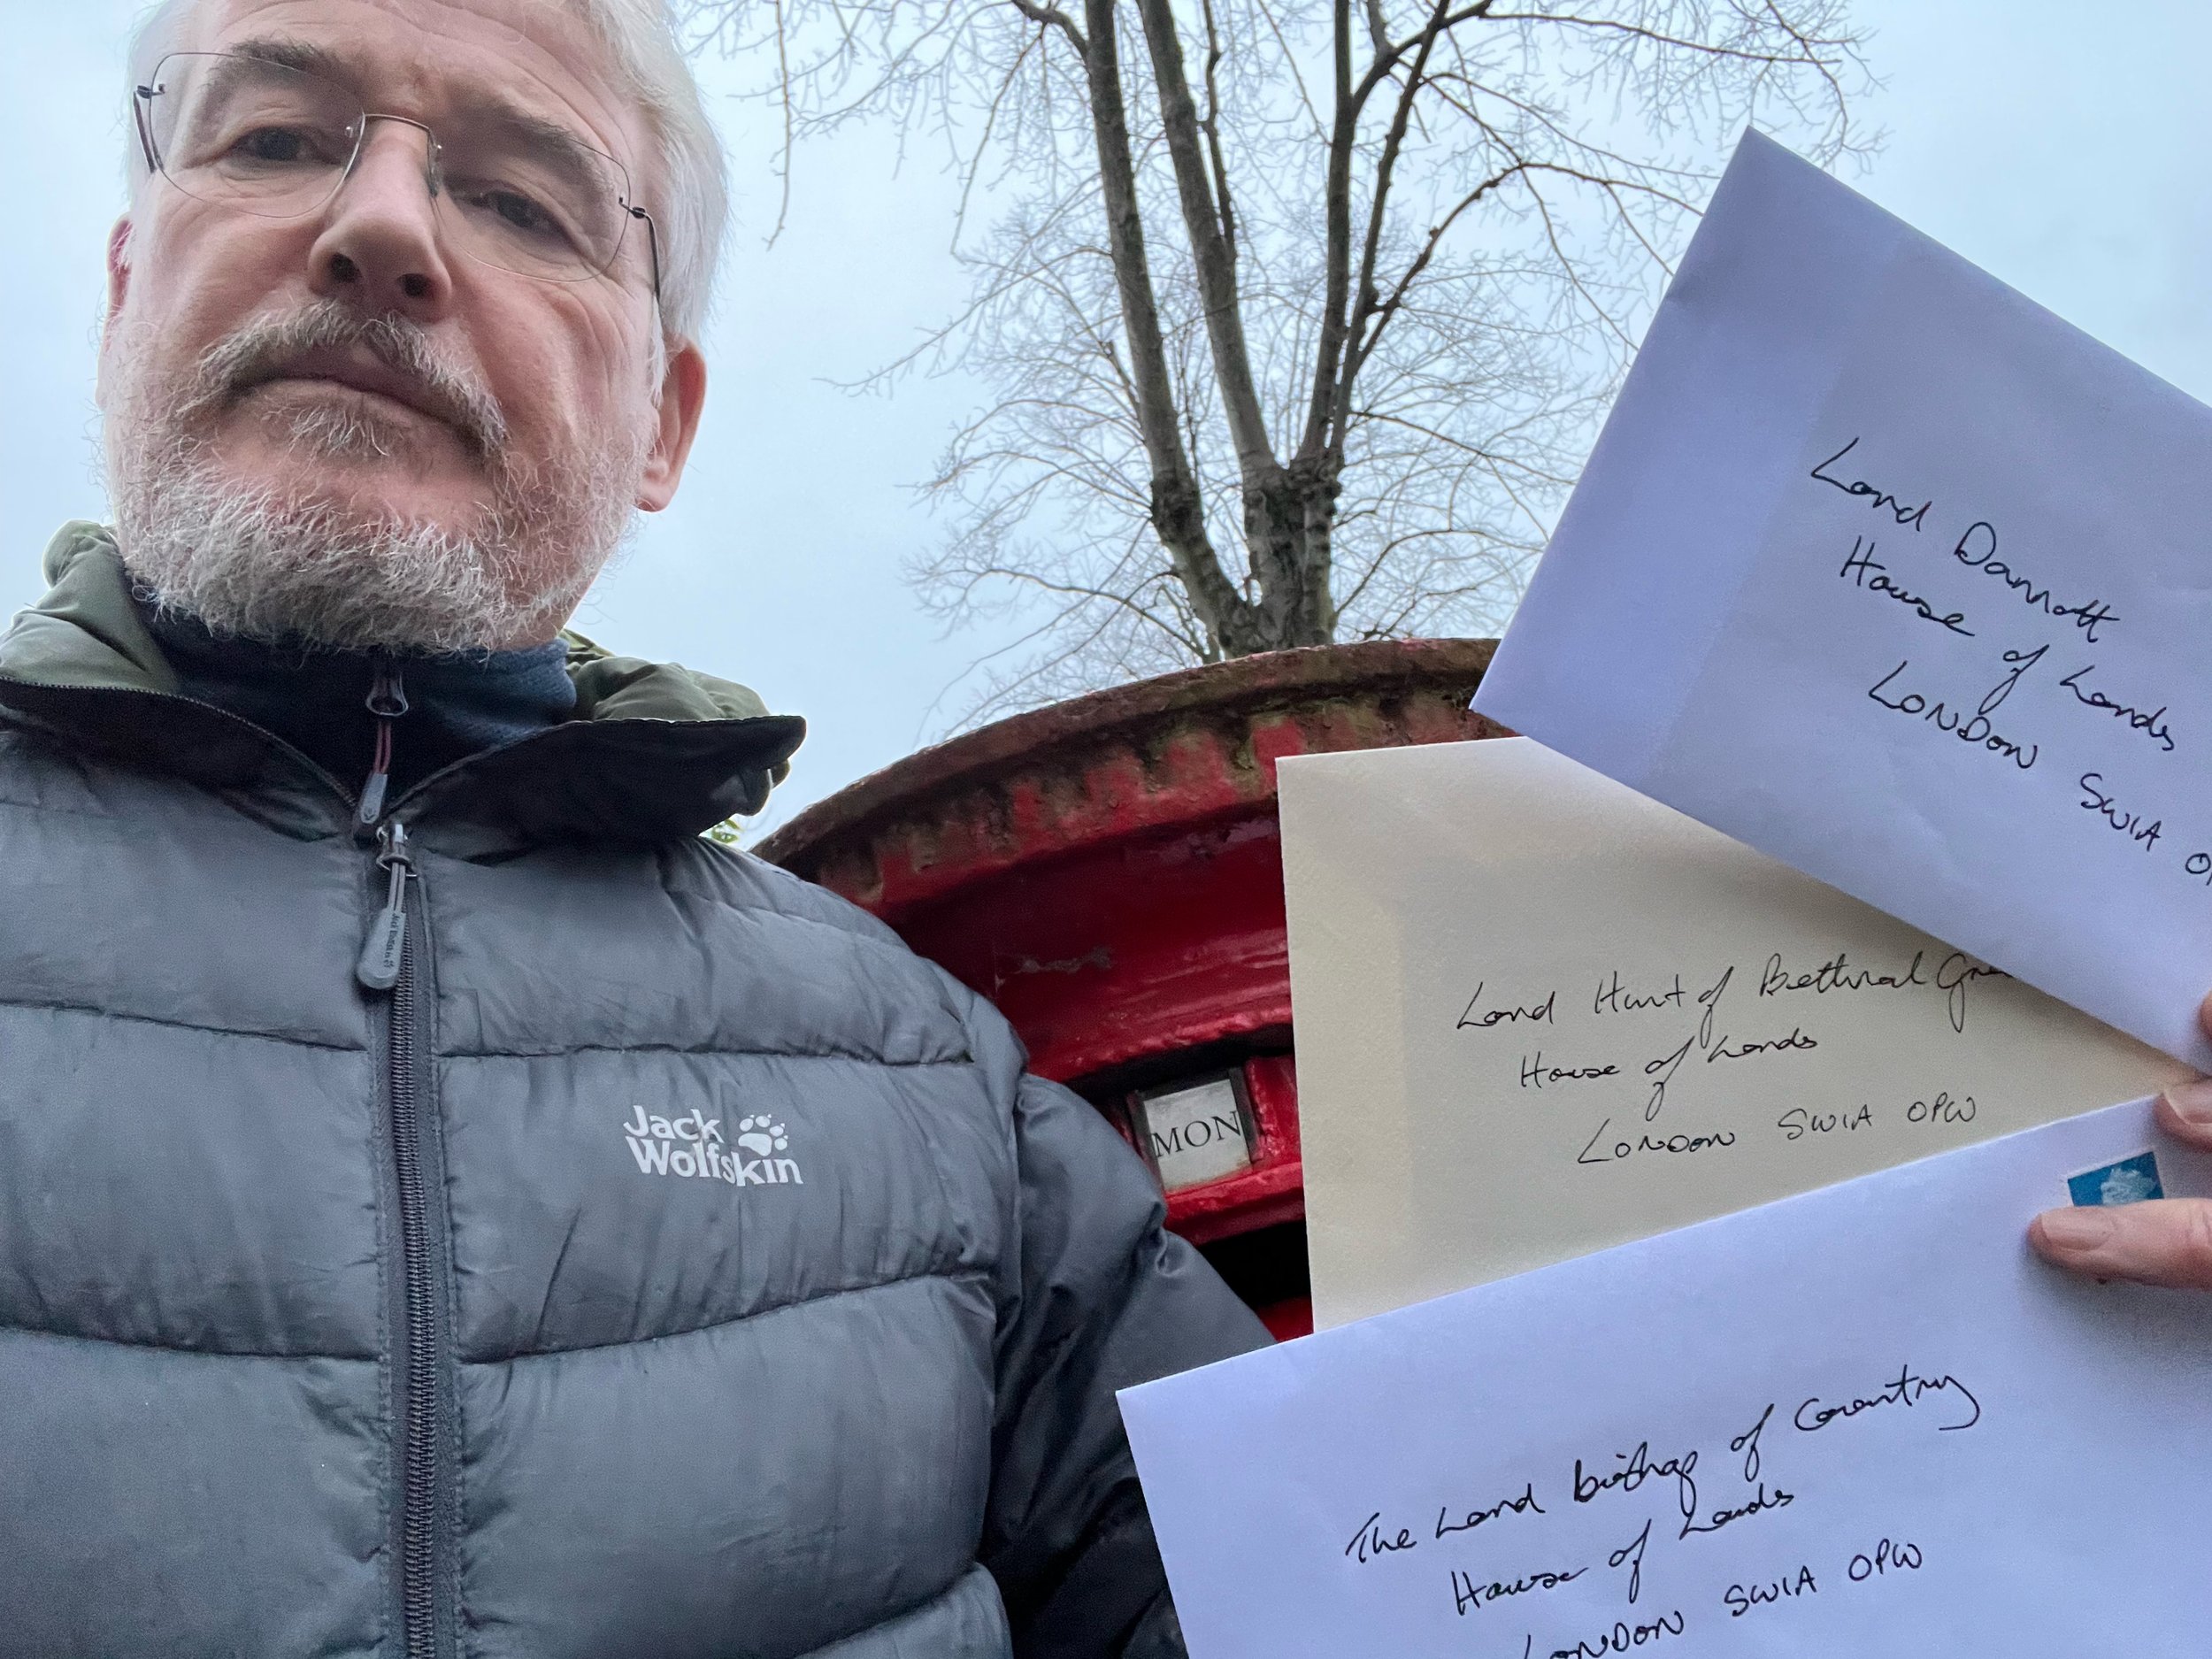 Jack
Wolfskin
MON
Lord Dannatt
House of Lords
LONDON SW1A
Lord Hunt of Bethnal
House of Lords
LONDON SW1A 0PW
The Lord bishop of Coventry
House of Lords
LONDON SW1A 0PW